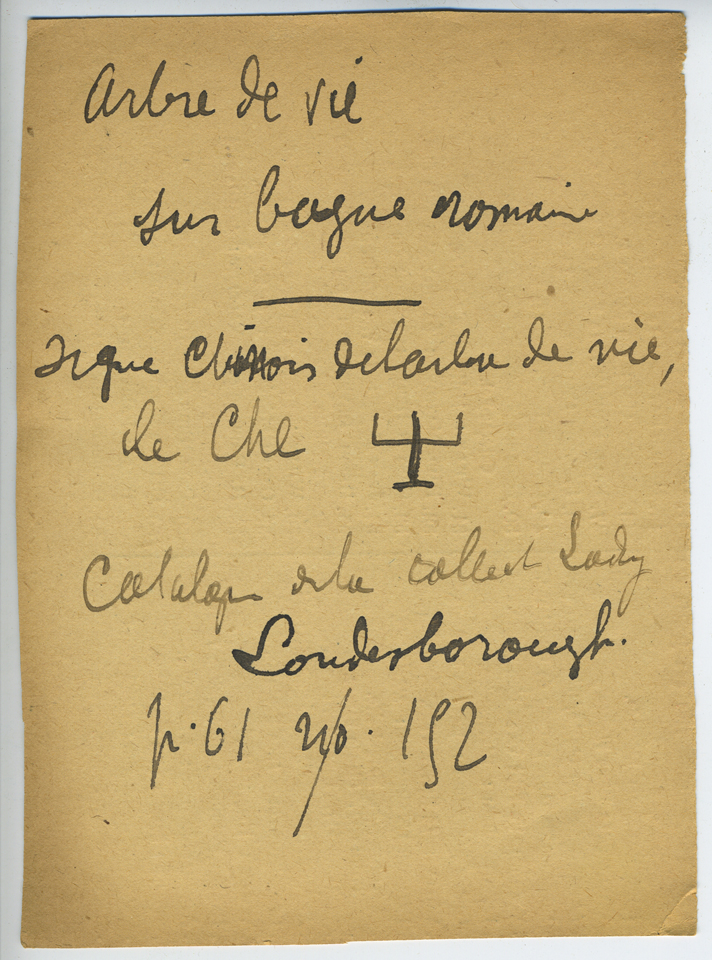 Arbre de vie
sur bague romaine
signe chinois de l'arbre de vie,
le Che
Catalogue de la collect Lady
Londesborough.
p. 61 no. 152